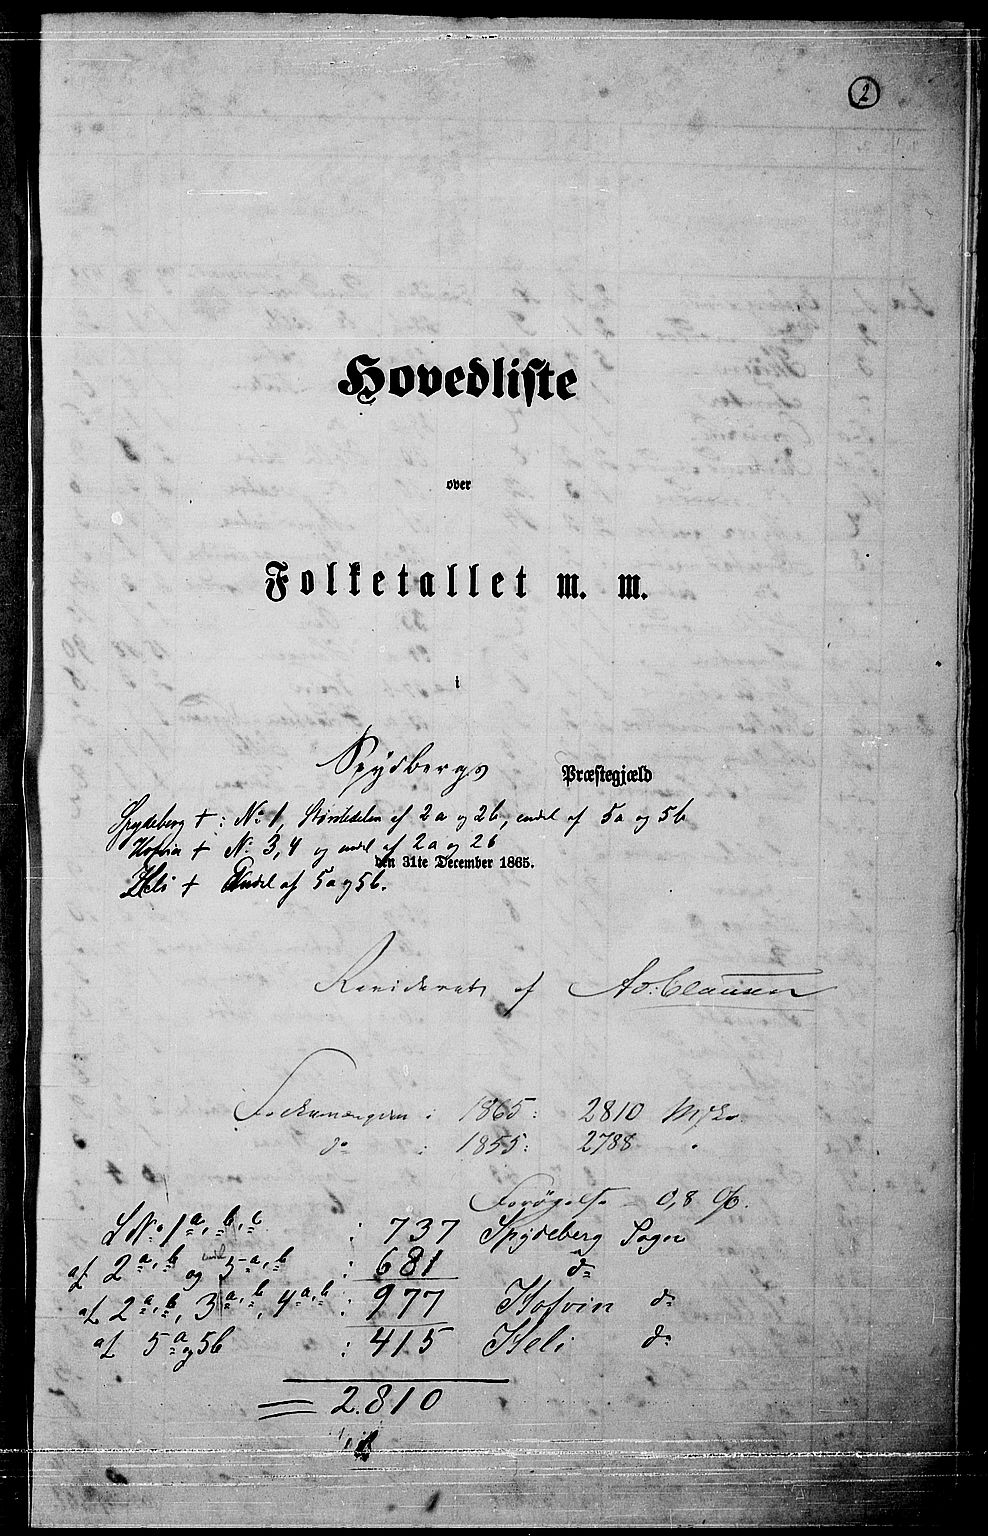 2
Hovedliste
over
Folketallet m. m.
i
Spydbergs Præstegjæld
Spydeberg +: No 1, Størstedelen af 2a og 2b, endel af 5a og 5b
Hofvin + No 3, 4 og endel af 2a og 2b
den 31te December 1865.
Heli + Endel af 5a og 5b.
Revideret af Ad: Clausen
Folkemængden i 1865: 2810 Msk.
do i 1855: 2788 "
Forøgelse 0,8 %.
No 1 a, b, c : 737 Spydeberg Sogn
af 2 a, b og endel 5 a, b : 681 do
af 2 a, b, 3 a, b, 4 a, b : 977 Hofvin do
af 5 a og 5b : 415 Heli do
= 2.810